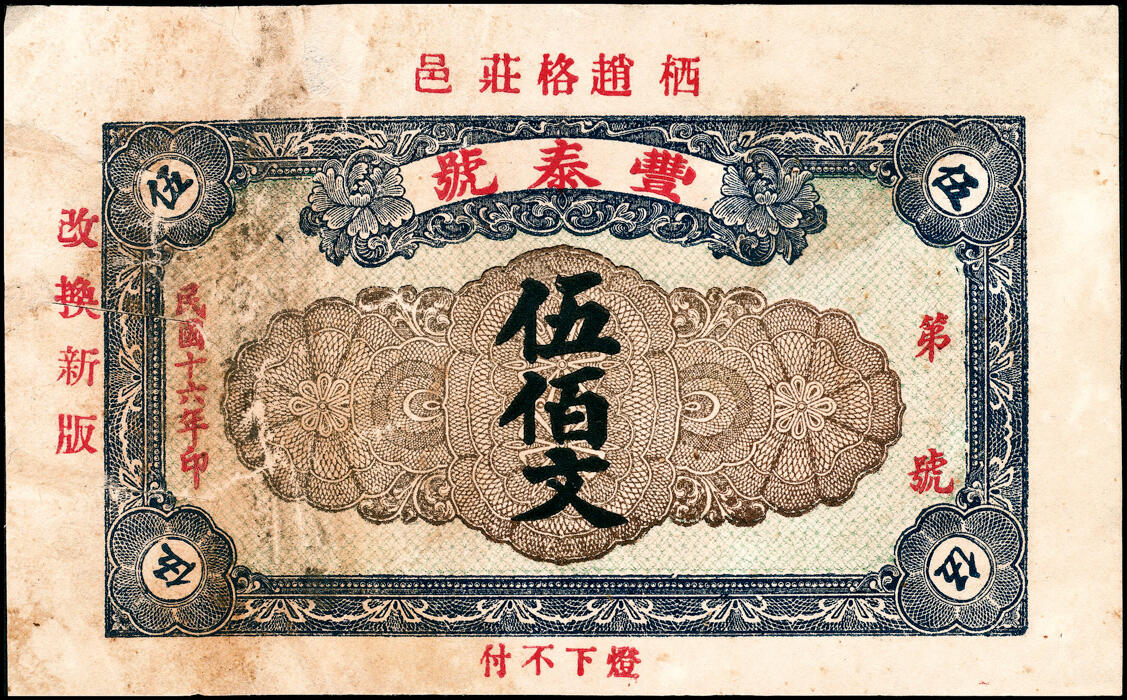 栖趙格莊邑
豐泰號
伍
伍
第
號
伍佰文
民國十六年印
改換新版
伍
伍
燈下不付